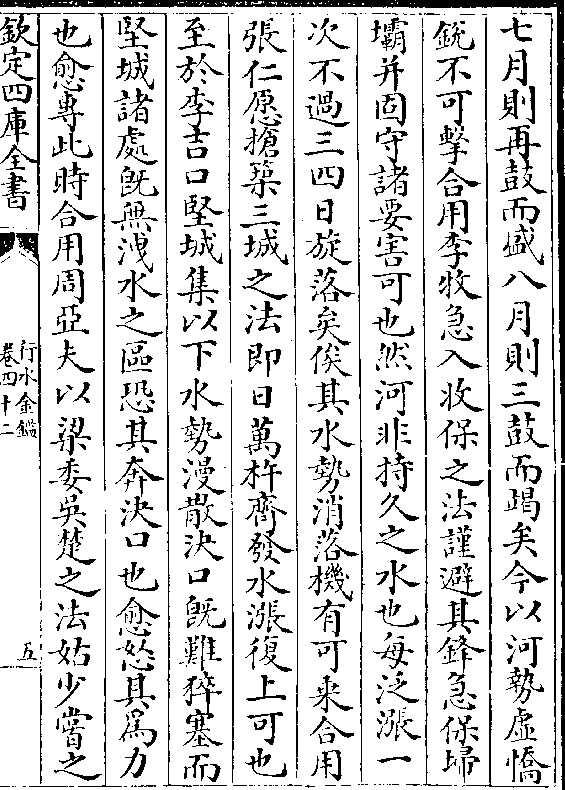 七月則再鼓而盛八月則三鼓而竭矣今以河勢虛憍
銳不可擊合用李牧急入收保之法謹避其鋒急保埽
壩并固守諸要害可也然河非持久之水也每泛漲一
次不過三四日旋落矣俟其水勢消落機有可乗合用
張仁愿搶築三城之法即日萬杵齊發水漲復上可也
至於李吉口堅城集以下水勢漫散決口旣難猝塞而
堅城諸處旣無洩水之區恐其奔決口也愈怒其為力
也愈專此時合用周亞夫以梁委吳楚之法姑少嘗之
欽定四庫全書
行水金鑑
卷四十二
五